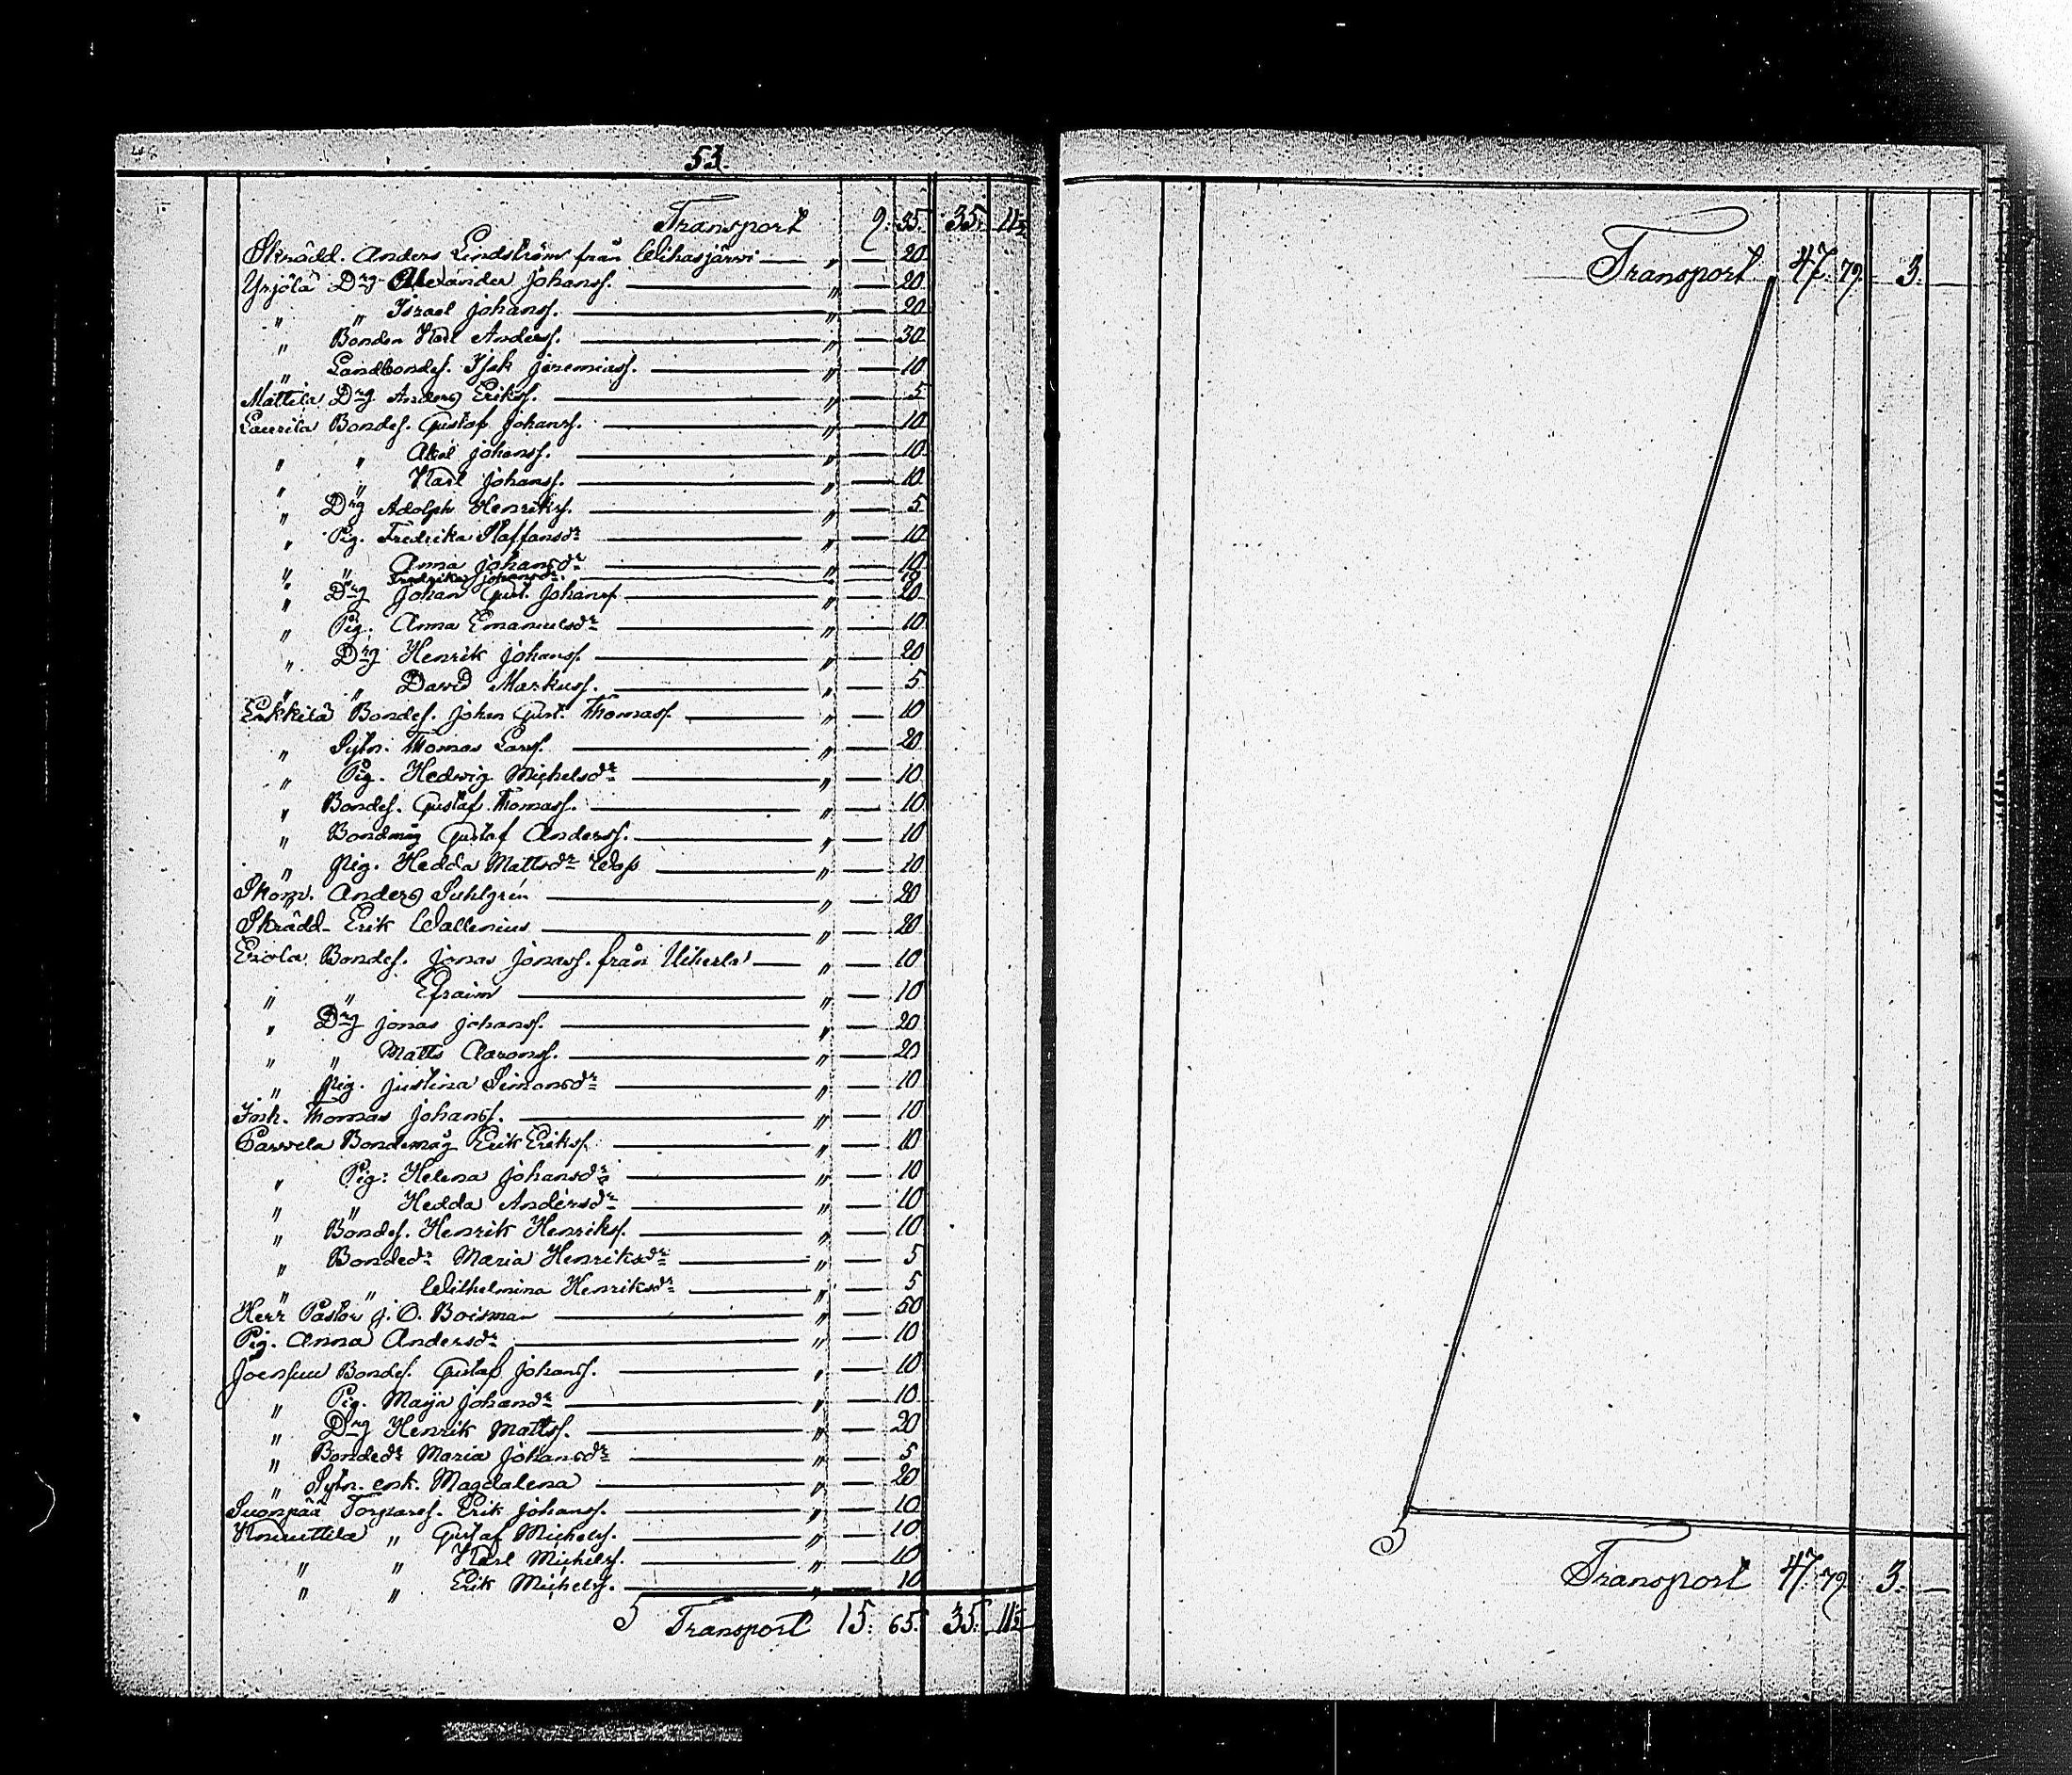 53.
Transport 9. 35. 35. 11½
Skrädd. Anders Lindström från Wihasjärvi — „ — 20
Yrjölä Drg Alexander Johansf. — „ — 20
„ „ Israel Johansf. — „ — 20
„ Bonden Karl Andersf. — „ — 30
„ Landbondes. Isak Jeremiasf. — „ — 10
Mattila Drg Anders Eriksf. — „ — 5
Laurila Bondes. Gustaf Johansf. — „ — 10
„ „ Abel Johansf. — „ — 10
„ „ Karl Johansf. — „ — 10
„ Drg Adolph Henriksf. — „ — 5
„ Pig. Fredrika Staffansdr — „ — 10
„ „ Anna Johansdr — „ — 10
„ „ Fredrika Johansdr. — „ — 10
„ Drg Johan Gust. Johansf. — „ — 20
„ Pig. Anna Emanuelsdr — „ — 10
„ Drg Henrik Johansf. — „ — 20
„ „ David Markusf. — „ — 5
Erkkilä Bondes. Johan Gust. Thomasf. — „ — 10
„ Sytn. Thomas Larsf. — „ — 20
„ Pig. Hedwig Michelsdr — „ — 10
„ Bondes. Gustaf Thomasf. — „ — 10
„ Bondmåg Gustaf Andersf. — „ — 10
„ Pig. Hedda Mattsdr — „ — 10
Skom. Anders Suhlgrén — „ — 20
Skrädd. Erik Wallenius — „ — 20
Eriola Bondes. Jonas Jonasf. från — „ — 10
„ „ Efraim — „ — 10
„ Drg Jonas Johansf. — „ — 20
„ „ Matts Aaronsf. — „ — 20
„ Pig. Justina Simonsdr — „ — 10
Inh. Thomas Johansf. — „ — 10
Pavvela Bondemåg Erik Eriksf. — „ — 10
„ Pig: Helena Johansdr — „ — 10
„ „ Hedda Andersdr — „ — 10
„ Bondes. Henrik Henriksf. — „ — 10
„ Bondedr Maria Henriksdr — „ — 5
„ „ Wilhelmina Henriksdr — „ — 5
Herr Pastor J. O. Boisman — „ — 50
Pig. Anna Andersdr — „ — 10
Joensuu Bondes. Gustaf Johansf. — „ — 10
„ Pig. Maija Johansdr — „ — 10
„ Drg Henrik Mattsf. — „ — 20
„ Bondedr Maria Johansdr — „ — 5
„ Sytn. enk. Magdalena — „ — 20
Suonpää Torpares. Erik Johansf. — „ — 10
Knuuttila „ Gustaf Michelsf. — „ — 10
„ „ Karl Michelsf. — „ — 10
„ „ Erik Michelsf. — „ — 10
Transport 15. 65. 35. 11½
Transport 47. 79. 3. —
Transport 47. 79. 3. —